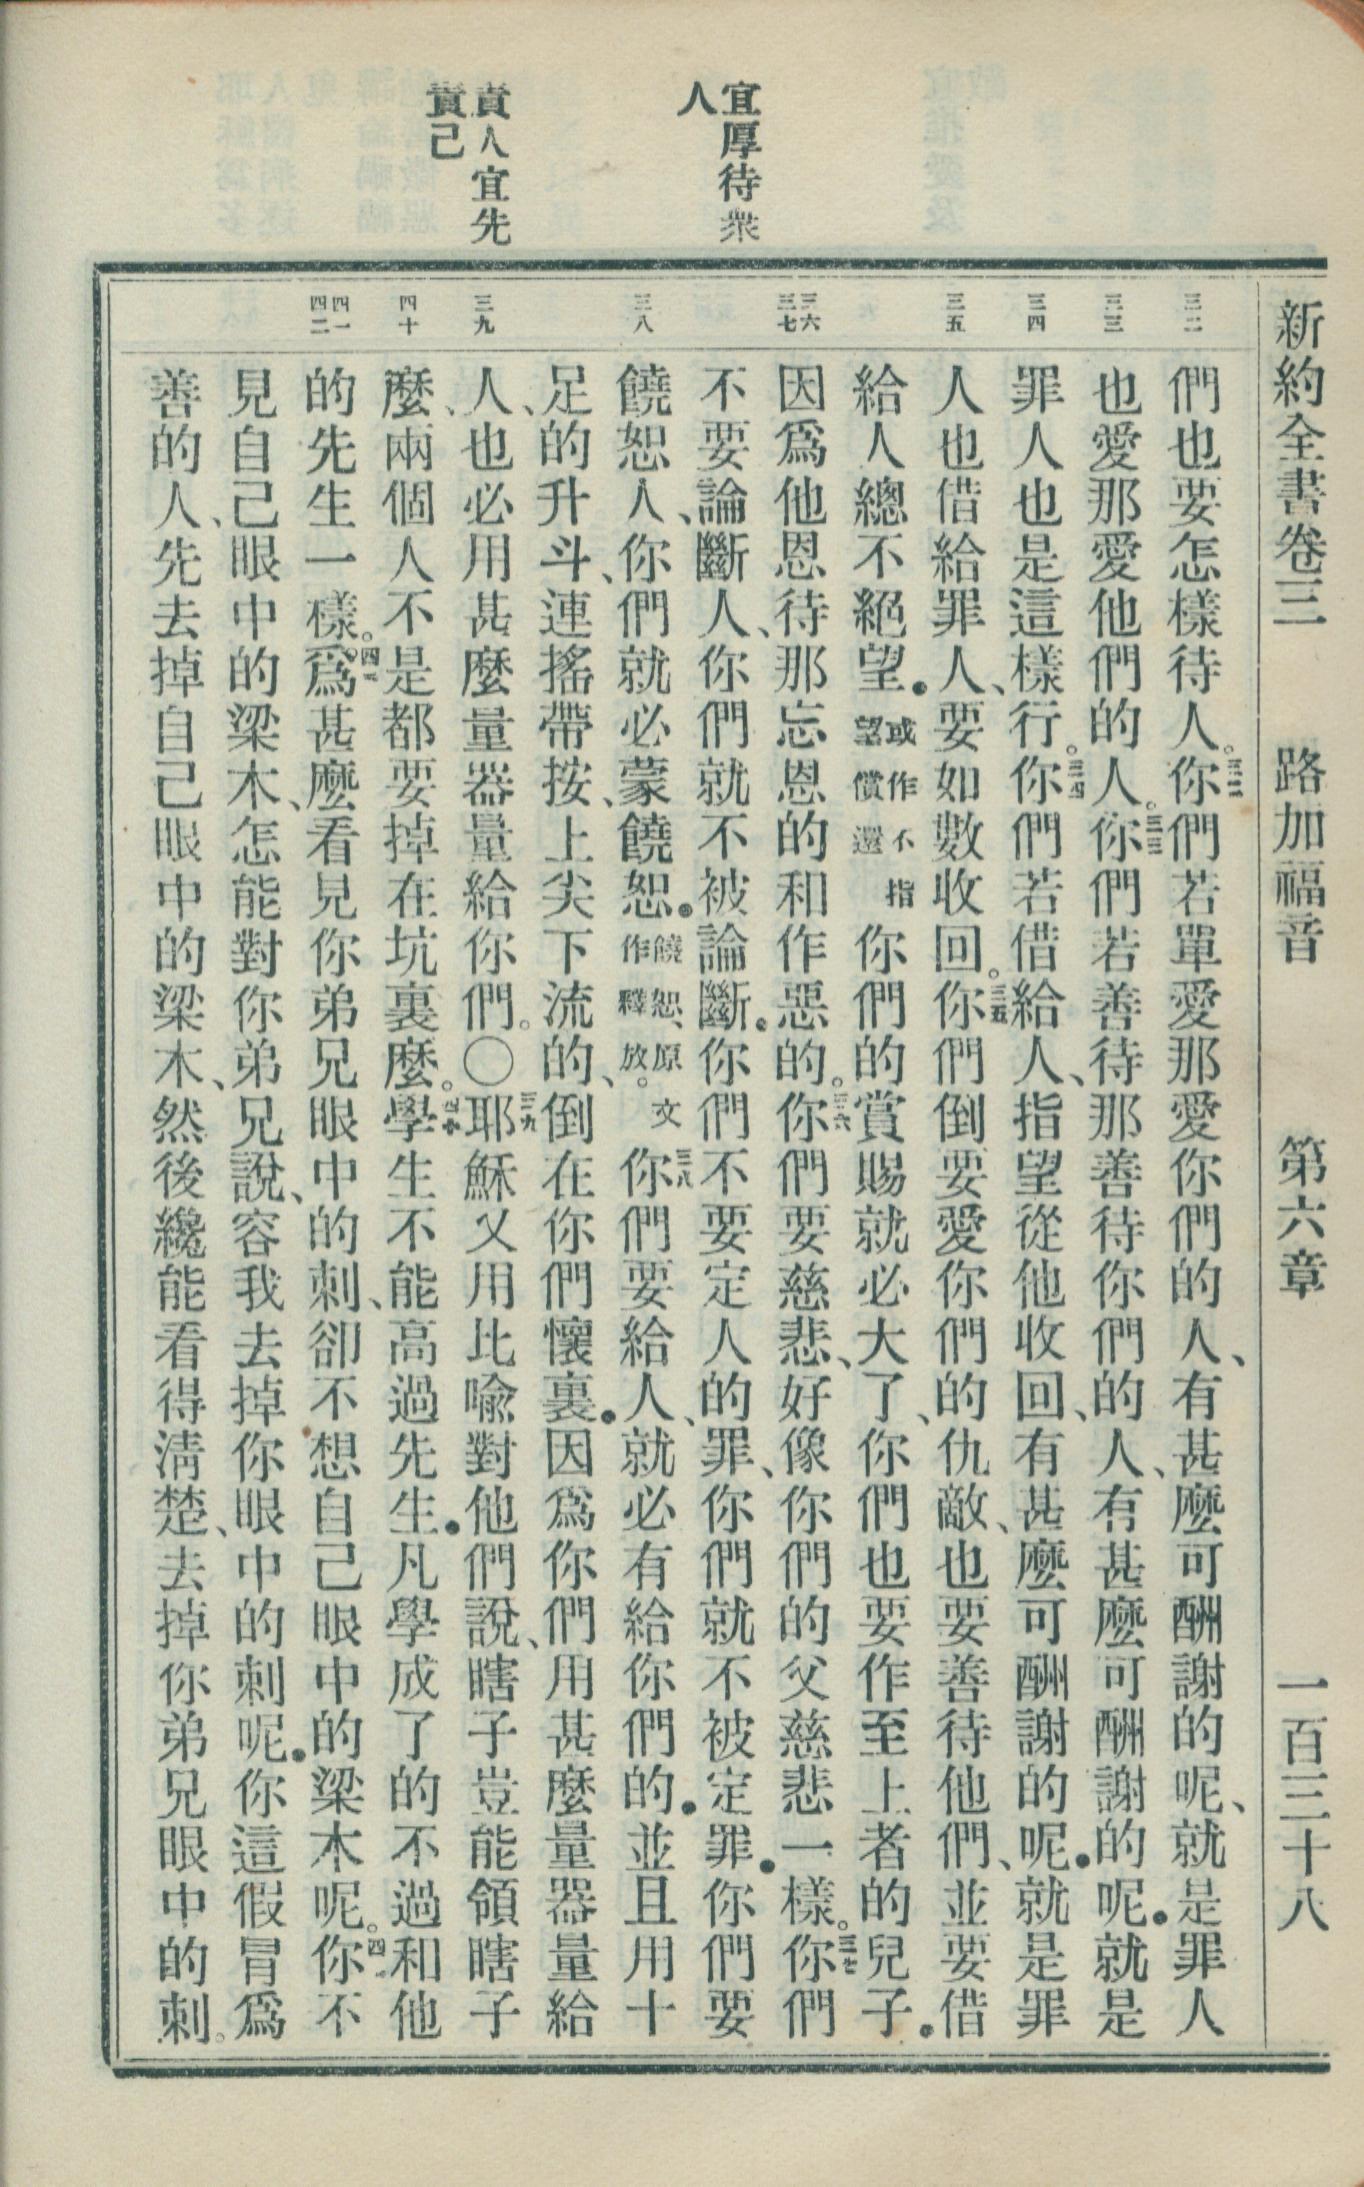 新約全書卷三　路加福音　第六章　一百三十八
宜厚待衆
人
責人宜先
責己
三二
三三
三四
三五
三六
三七
三八
三九
四十
四一
四二
們也要怎樣待人。三二你們若單愛那愛你們的人、有甚麼可酬謝的呢、就是罪人
也愛那愛他們的人。三三你們若善待那善待你們的人、有甚麼可酬謝的呢．就是
罪人也是這樣行。三四你們若借給人、指望從他收回、有甚麼可酬謝的呢．就是罪
人也借給罪人、要如數收回。三五你們倒要愛你們的仇敵、也要善待他們、並要借
給人總不絕望．或作不指望償還你們的賞賜就必大了、你們也要作至上者的兒子．
因爲他恩待那忘恩的和作惡的。三六你們要慈悲、好像你們的父慈悲一樣。三七你們
不要論斷人、你們就不被論斷．你們不要定人的罪、你們就不被定罪．你們要
饒恕人、你們就必蒙饒恕．饒恕、原文作釋放。三八你們要給人、就必有給你們的．並且用十
足的升斗、連搖帶按、上尖下流的、倒在你們懷裏．因爲你們用甚麼量器量給
人、也必用甚麼量器量給你們。〇三九耶穌又用比喩對他們說、瞎子豈能領瞎子
麼、兩個人不是都要掉在坑裏麼。四十學生不能高過先生．凡學成了的不過和他
的先生一樣。四一爲甚麼看見你弟兄眼中的刺、卻不想自己眼中的梁木呢。四二你不
見自己眼中的梁木、怎能對你弟兄說、容我去掉你眼中的刺呢．你這假冒爲
善的人、先去掉自己眼中的梁木、然後纔能看得淸楚、去掉你弟兄眼中的刺。